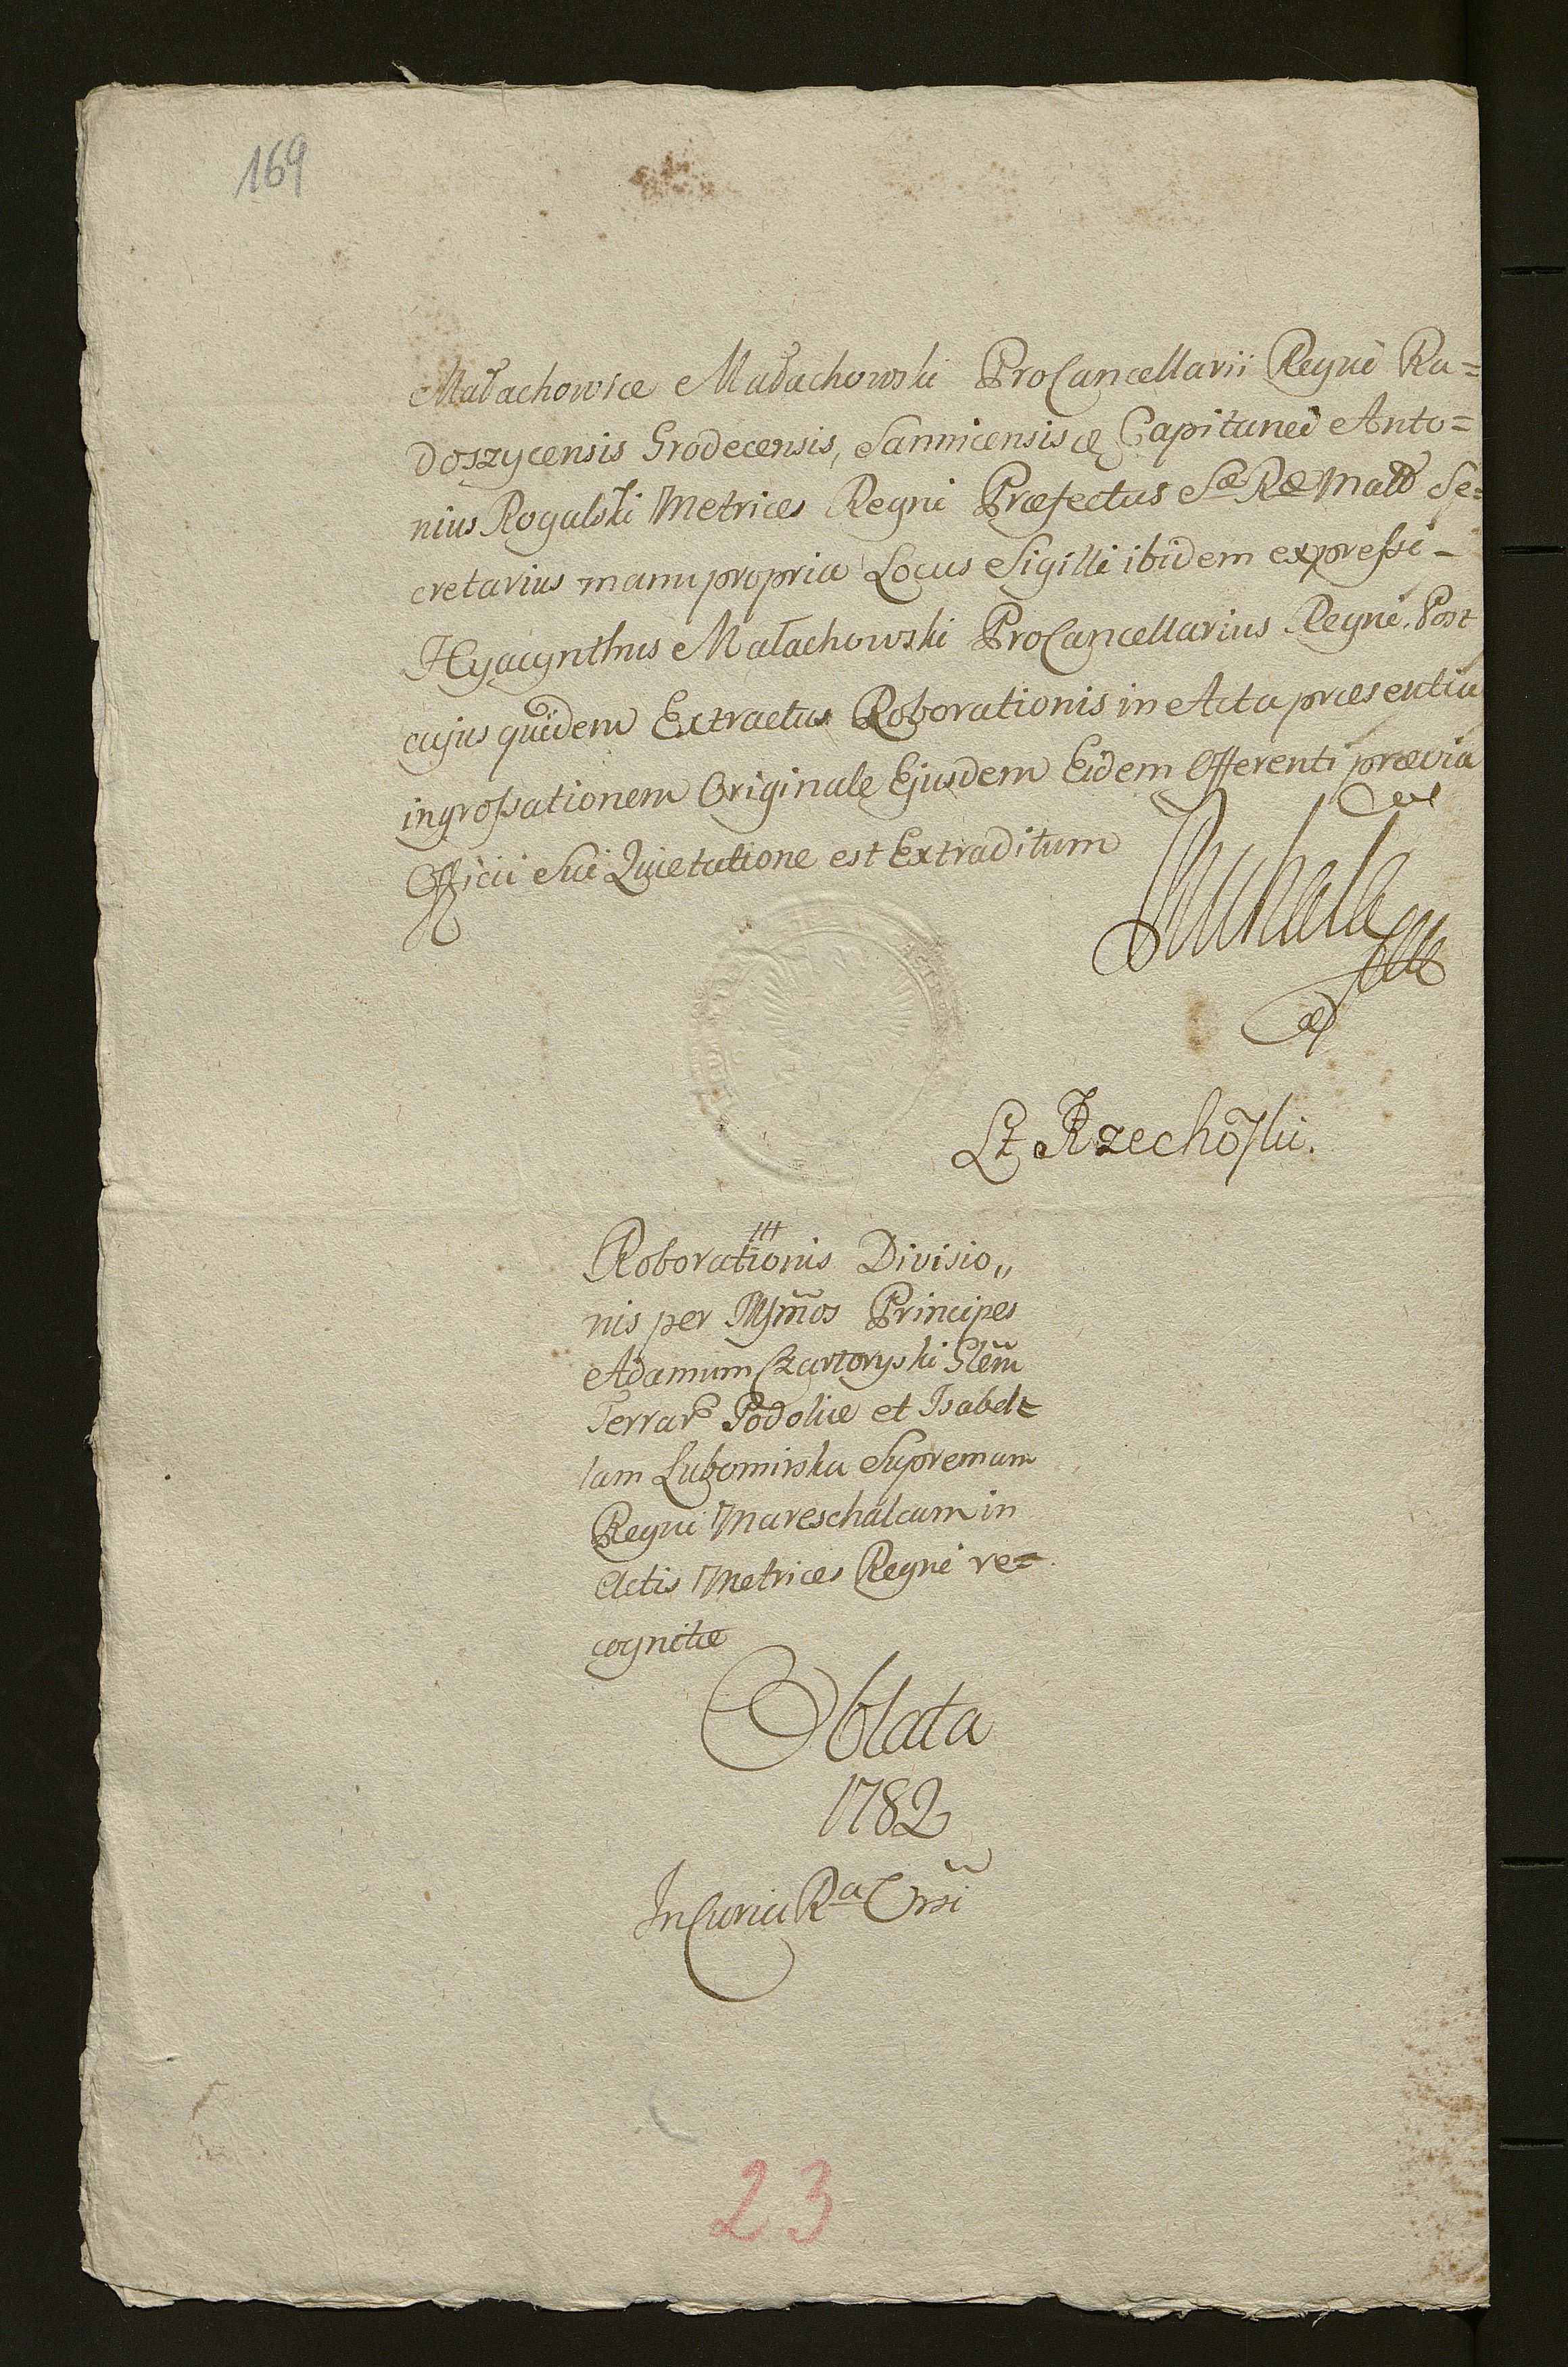 169
Małachowice Małachowski ProCancellarii Regni Ra=
doszycensis Grodecensis, Sannicensis & Capitanei Anto=
nius Rogalski Metrices Regni Præfectus Sæ Ræ Mattis Se=
cretarius manu propria Locus Sigilli ibidem expressi _
Hyacynthus Małachowski ProCancellarius Regni. Post
cujus quidem Extractus Roborationis in Acta præsentia
ingrossationem Originale Ejusdem Eidem Offerenti prævia
Officii Sui Quietatione est Extraditum
Rzechoski.
Roborationis Divisio„
nis per Illm̃os Principes
Adamum Czartoryski Glẽm
Terrar Podoliæ et Isabel=
lam Lubomirska Supremam
Regni Mareschalcam in
Actis Metrices Regni re=
cognitæ
Oblata
1782
In Curia Ra
23